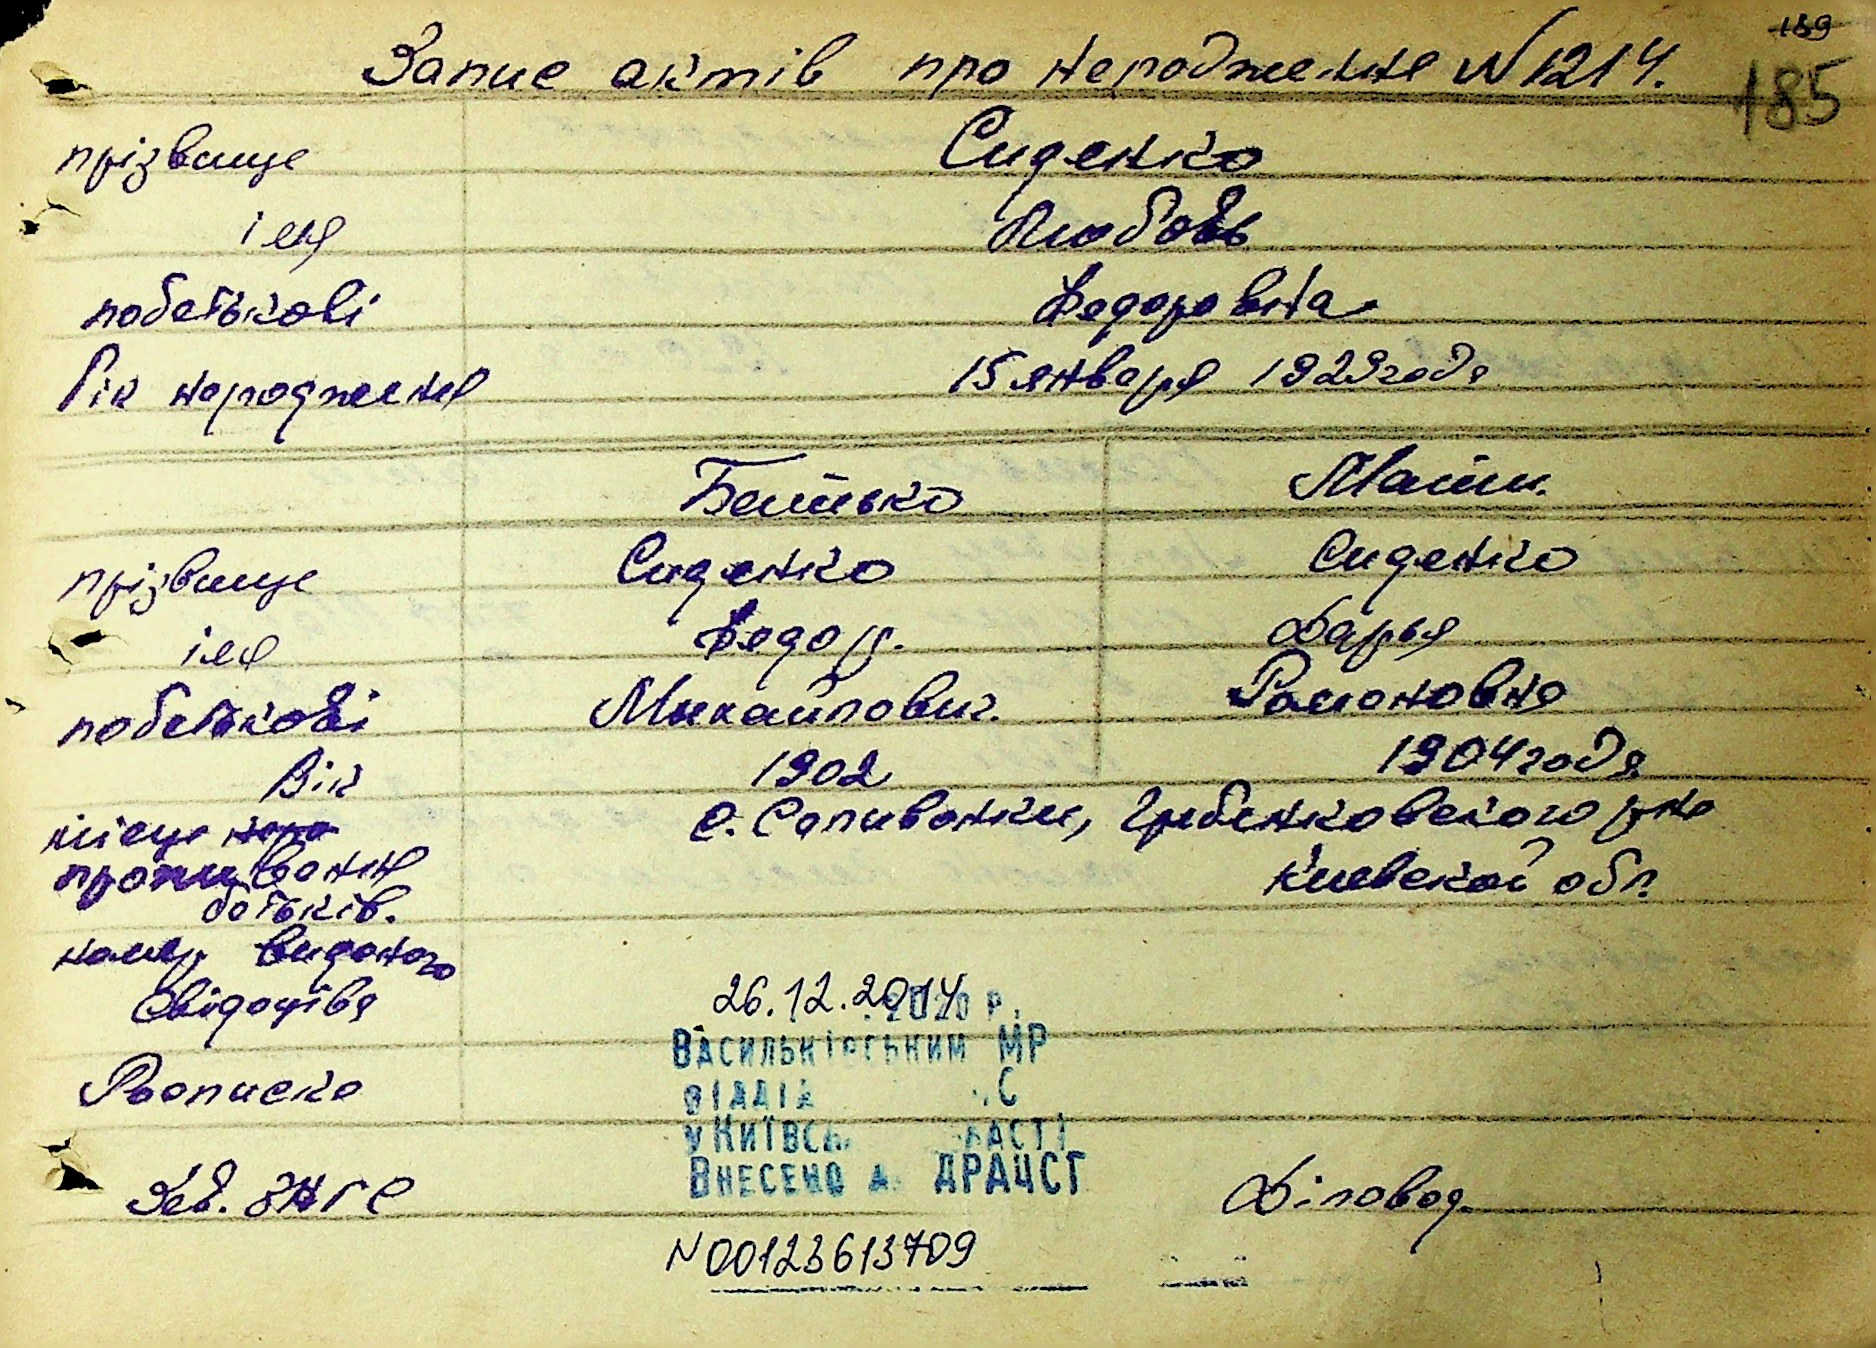 189
185
Запис актів про народження N 1214.
прізвище Сиденко
імя Любовь
побатькові Федоровна
Рік народження 15 января 1929 года
Батько Мати.
прізвище Сиденко Сиденко
імя Федор. Дарья
побатькові Михайлович. Романовна
Вік 1902 1904 года
місце наро с. Саливонки, Гребенковского р-на
проживання Киевской обл.
батьків.
номер виданого
свідоцтва
26.12.2014 р.
Васильківським МР
Росписка
відділ С
у Київськ ласті
Внесено д ДРАЦСГ
Зав. ЗАГС Діловод.
N 00123613709